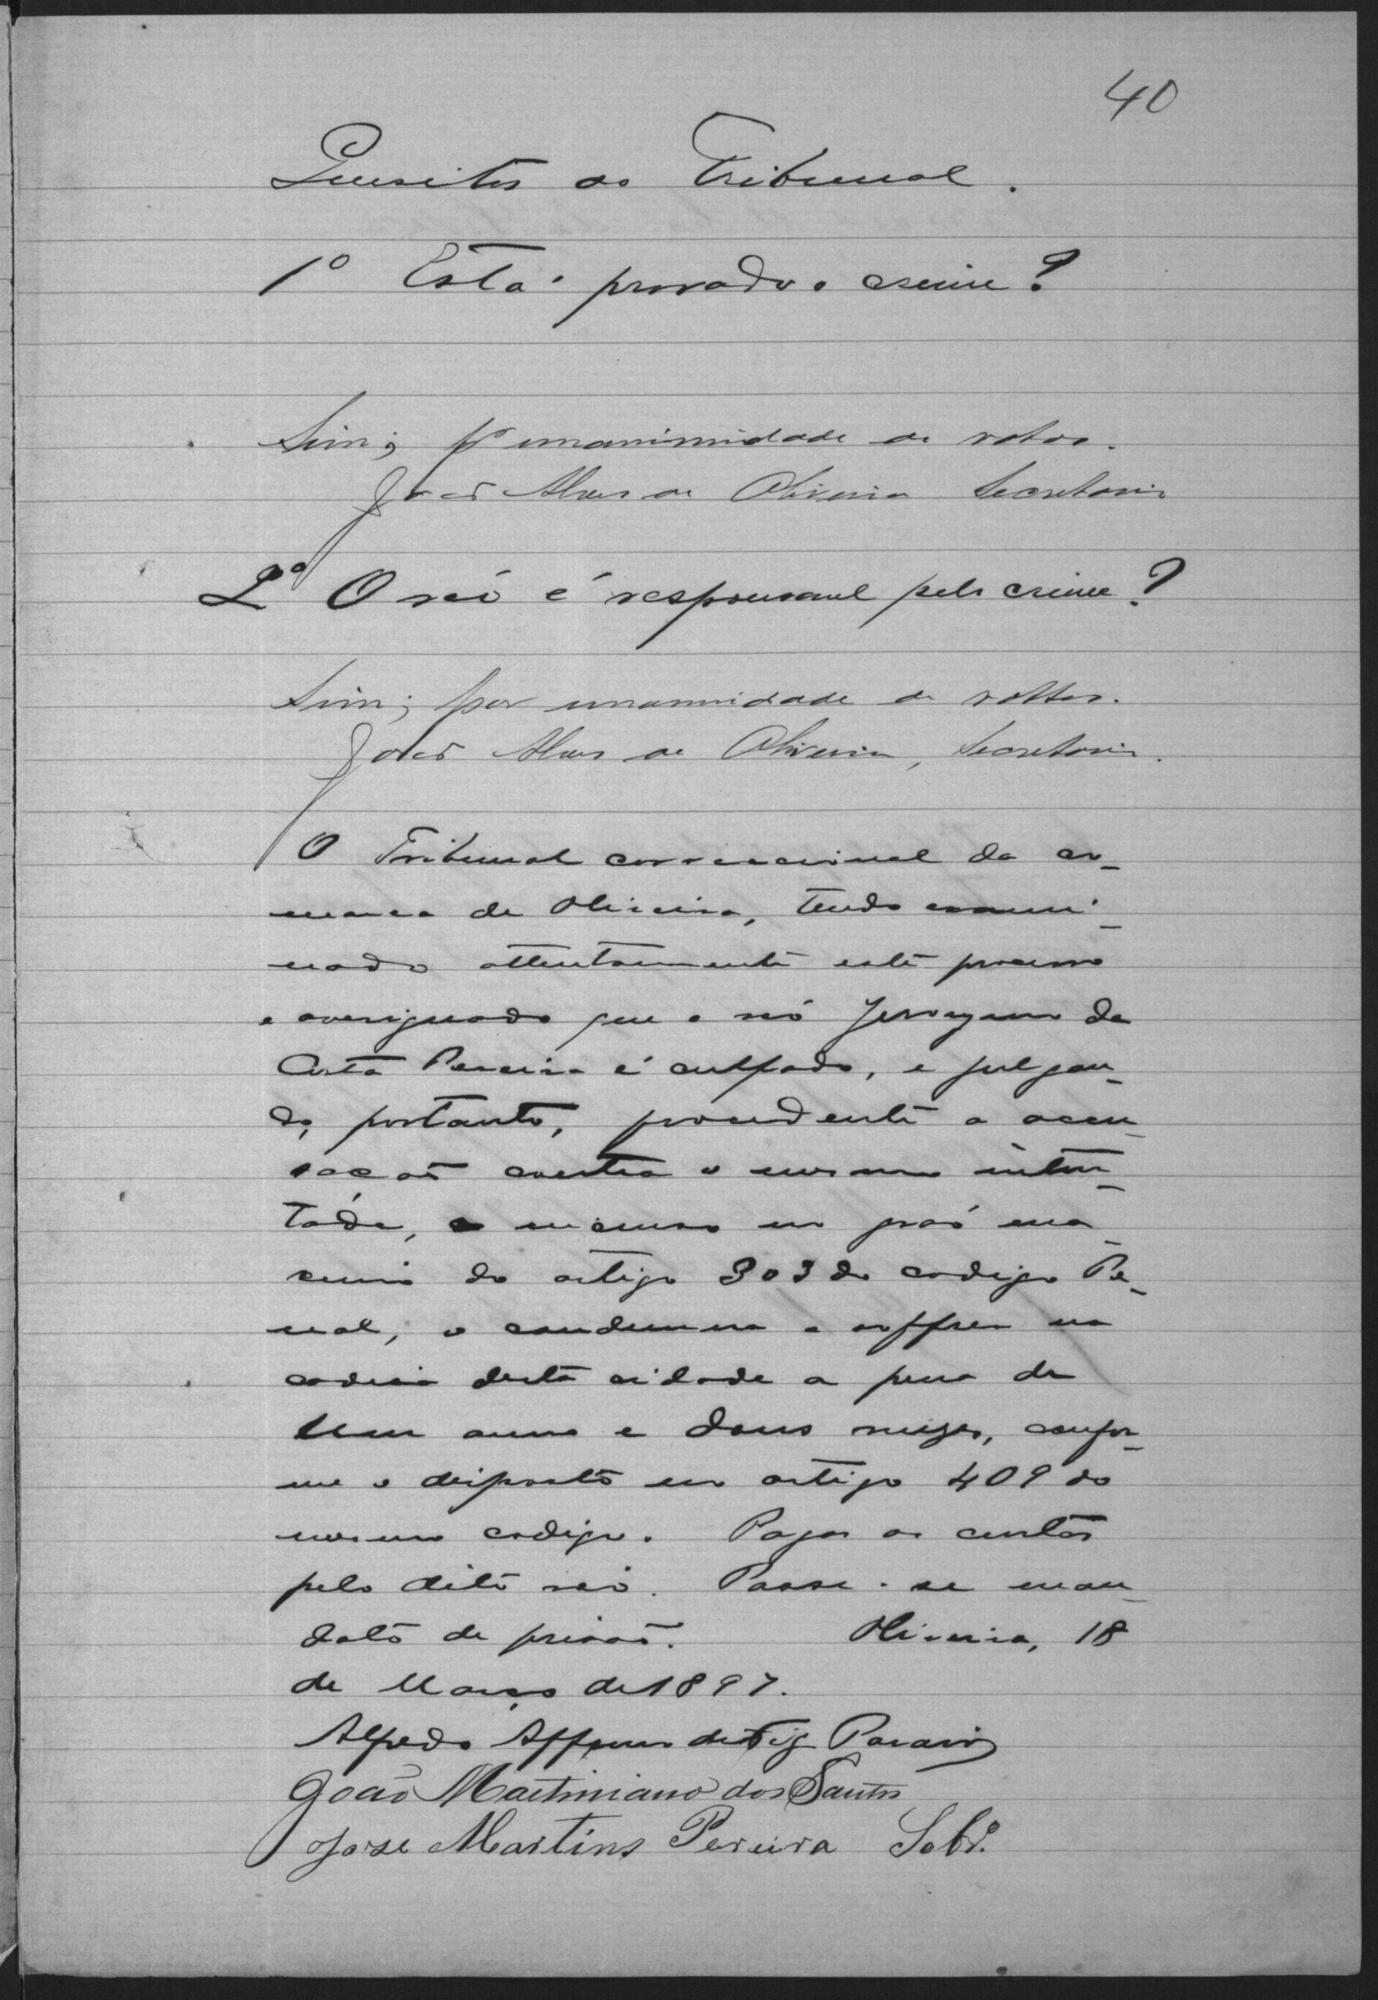 40
Quesitos ao Tribunal.
1º Está provado o crime?
Sim; pr unanimidade de votos.
João Alves de Oliveira Secretario
2º O réo é responsavel pelo crime?
Sim; por unanimidade de vottos.
João Alves de Oliveira, Secretario.
O Tribunal correccional da co-
marca de Oliveira, tendo exami-
nado attentamente este processo
e averiguado que o réo da
Costa Pereira é culpado, e julgan-
do, portanto, procedente a accu-
sação contra o mesmo inten-
tada, incurso no gráo ma-
ximo do artigo 303 do codigo Pe-
nal, o condemna a soffrer na
cadeia desta cidade a pena de
um anno e dous mezes, confor-
me o disposto no artigo 409 do
mesmo codigo. Pagas as custas
pelo dito réo. Passe-se man-
dato de prisão. Oliveira, 18
de Março de 1897.
Alfredo Affonso de Fig Paraiso
João Martiniano dos Santos
José Martins Pereira Sobrº.